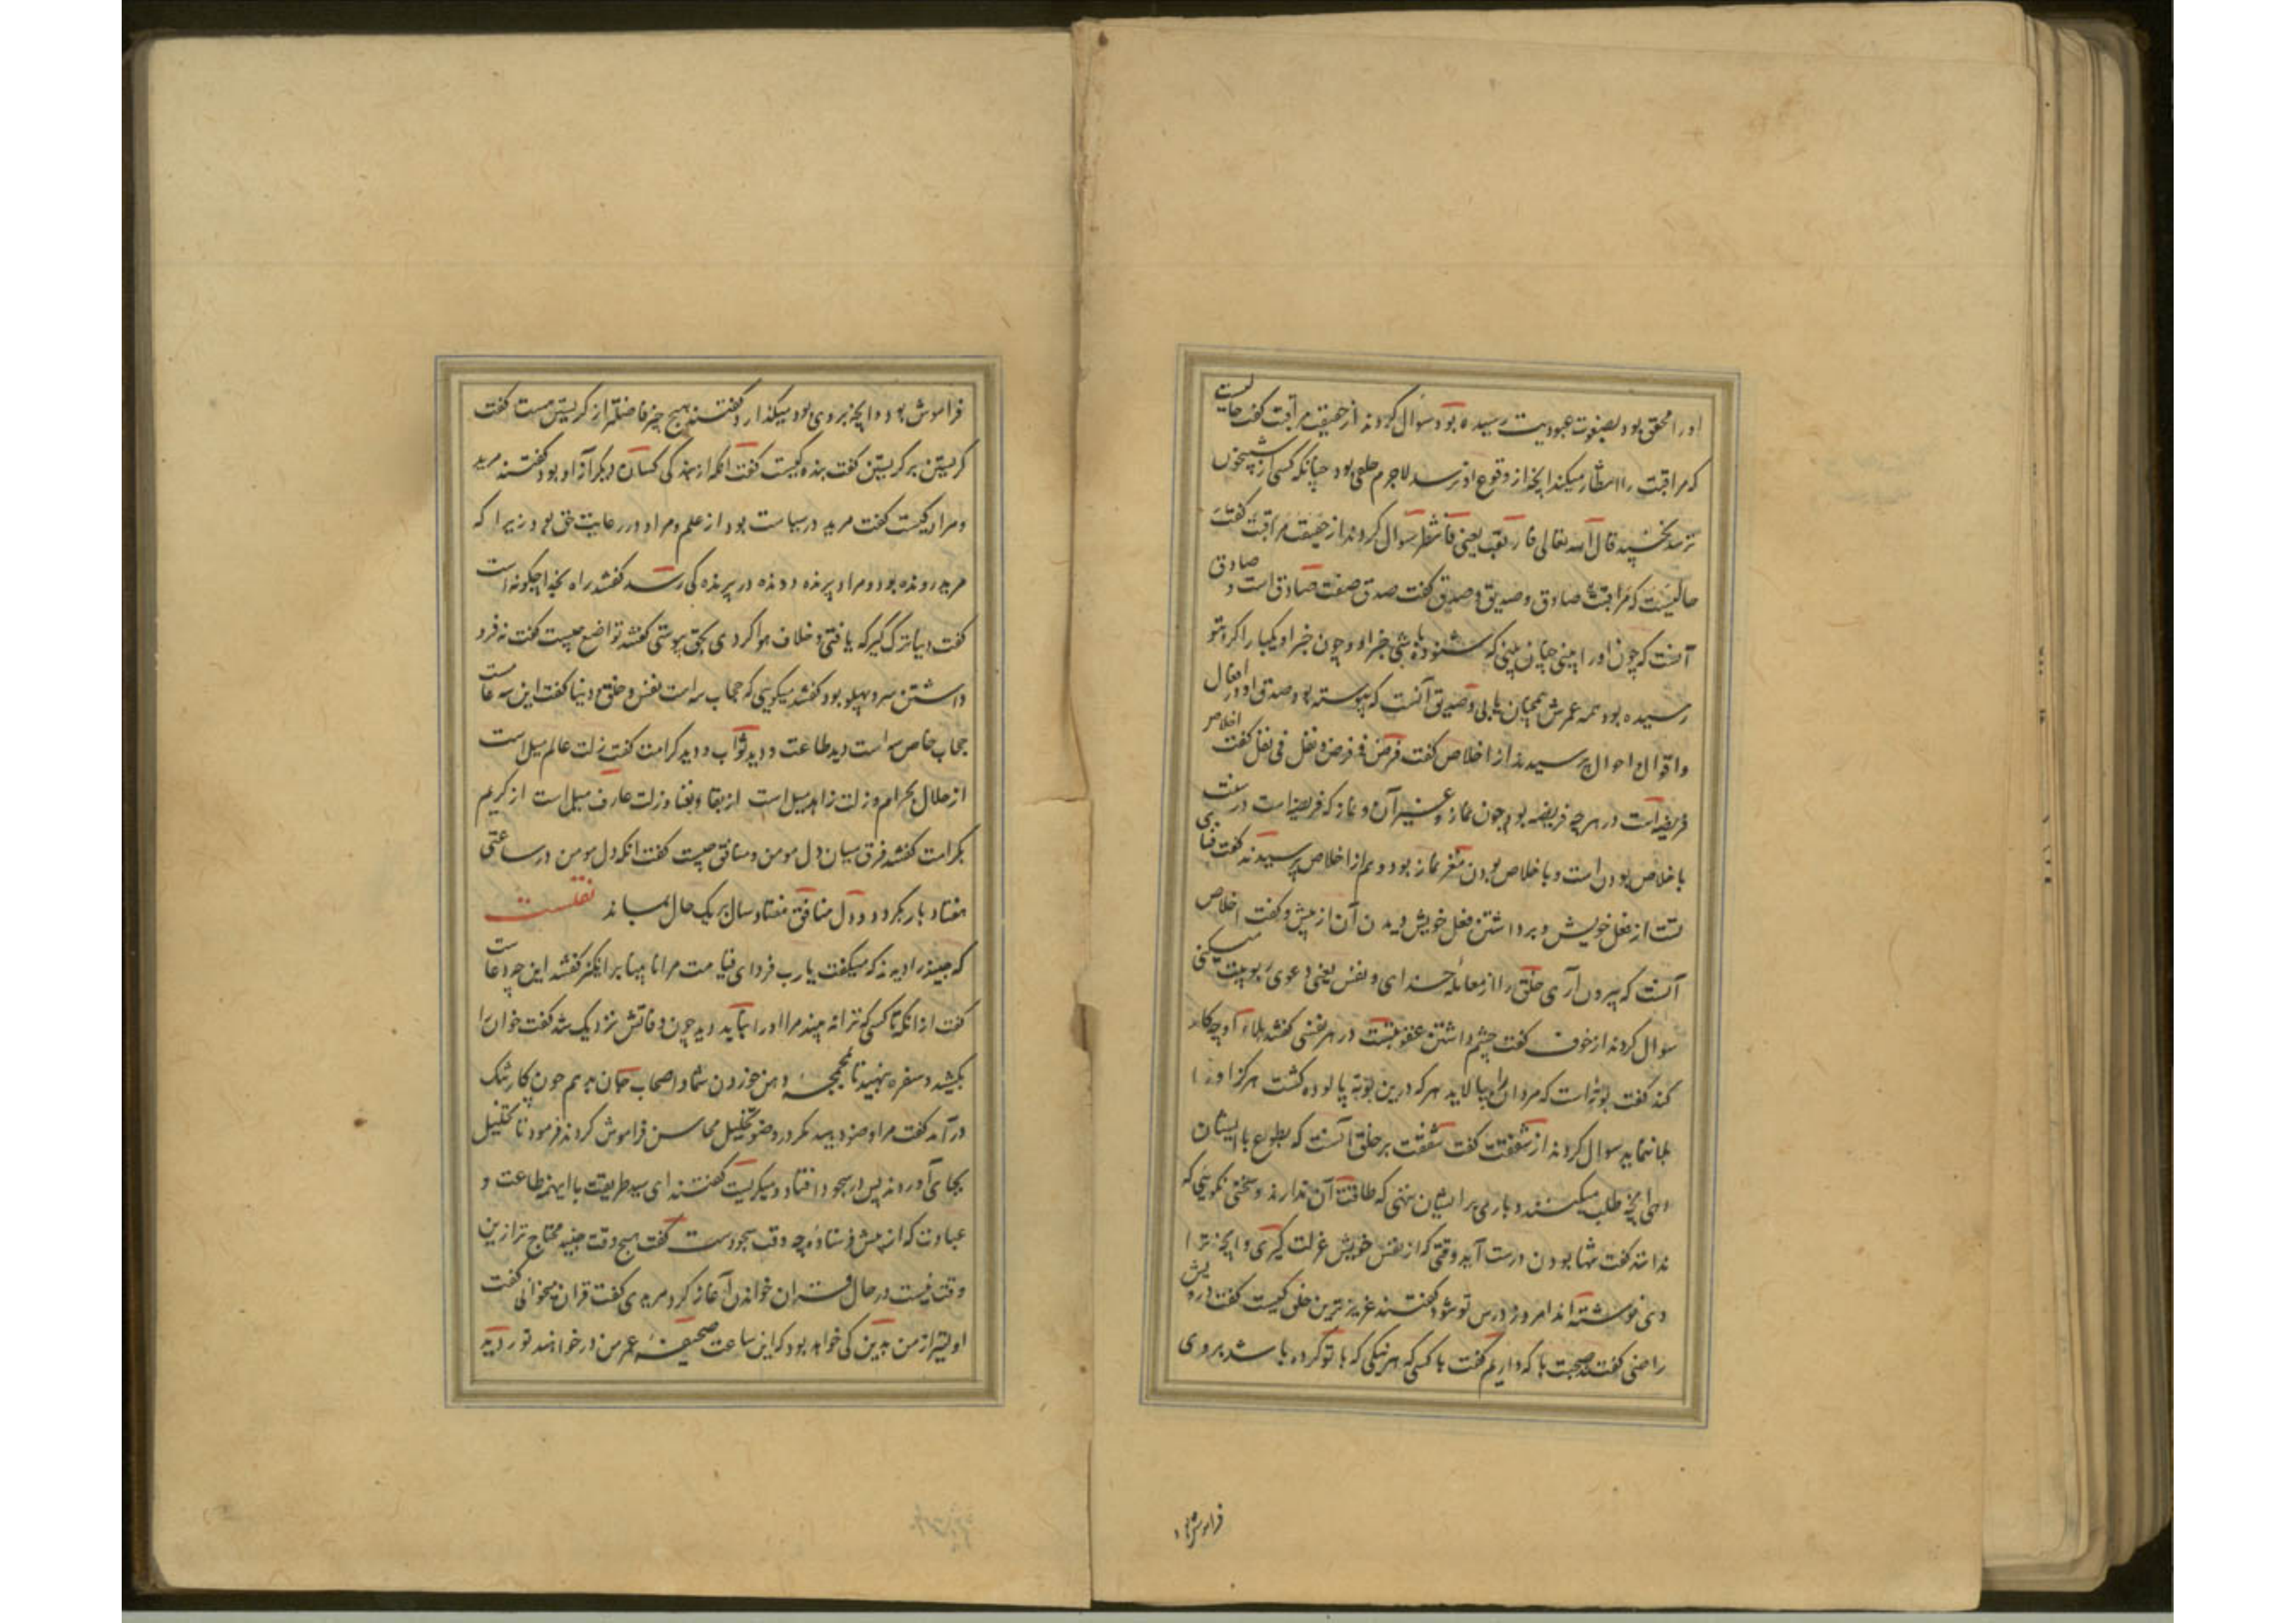 او را محقق بود بصفوت عبودیت رسیده بود سوال کردند از حقیقت مراقبت گفت حالیست
که مراقبت را انتظار میکند آنچه از وقوع او ترسد لاجرم خلقی بود چنانکه کسی از شبیخون
ترسد نخسپد قال الله تعالی فارتقب یعنی فانتظر سوال کردند از حقیقت مراقبت گفت
حالیست که مراقبت صادق و صدیق و صدق گفت صدق صفت صادق است و صادق
آنست که چون او را بینی چنان بینی که شنوده باشی خبر او چون خبر او یکبار اگر بتو
رسیده بود همه عمرش همچنان یابی و صدیق آنست که پیوسته بود صدق او در افعال
و اقوال و احوال پرسیدند از اخلاص گفت فرض فی فرض و نفل فی نفل گفت اخلاص
فریضه است در هر چه فریضه بود چون نماز و غیر آن و نماز که فریضه است در سنت
با خلاص بودن است و با خلاص بودن مغز نماز بود و هم از اخلاص پرسیدند گفت فنا
است از فعل خویش و برداشتن فعل خویش دیدن آن از پیش و گفت اخلاص
آنست که بیرون آری خلق را از معامله خدای و نفس یعنی دعوی ربوبیت میکنی
سوال کردند از خوف گفت چشم داشتن عقوبتست در هر نفسی گفتند بلاء او چه کار
کند گفت بوته است که مردان را پالاید هر که درین بوته پالوده گشت هرگز او را
بلا ننماید سوال کردند از شفقت گفت شفقت بر خلق آنست که بطوع بایشان
دهی آنچه طلب میکنند و باری بر ایشان ننهی که طاقت آن ندارند و سخنی نگویی که
ندانند گفت تنها بودن درست آید وقتی که از نفس خویش عزلت گیری و آنچه ترا
دی نوشته اند امروز درس تو شود گفتند عزیزترین خلق کیست گفت درویش
راضی گفتند صحبت با که داریم گفت با کسی که هر نیکی که با تو کرده باشد بر وی
فراموش بود
فراموش بود و آنچه بر وی بود میگذارد گفتند هیچ چیز فاضلتر از گریستن هست گفت
گریستن بر گریستن گفت بنده کیست گفت آنکه از بندگی کسان دیگر آزاد بود گفتند مرید
و مراد کیست گفت مرید در سیاست بود از علم و مراد در رعایت حق بود زیرا که
مرید دونده بود و مراد پرنده دونده در پرنده کی رسد گفتند راه بخدا چگونه است
گفت دنیا ترک گیر که یافتی و خلاف هوا کردی بحق پیوستی گفتند تواضع چیست گفت فرو
داشتن سر و پهلو بود گفتند میگویی که حجاب سه است نفس و خلق و دنیا گفت این سه عام است
حجاب خاص سه است دید طاعت و دید ثواب و دید کرامت گفت زلت عالم میل است
از حلال بحرام و زلت زاهد میل است از بقا و بفنا و زلت عارف میل است از کریم
بکرامت گفتند فرق میان دل مومن و منافق چیست گفت آنکه دل مومن در ساعتی
هفتاد بار بگردد و دل منافق هفتاد سال بر یک حال بماند نقلست
که جنید را دیدند که میگفت یارب فردای قیامت مرا نابینا برانگیز گفتند این چه دعاست
گفت از آنکه تا کسی که ترا نه بیند مرا او را نباید دید چون وفاتش نزدیک شد گفت خوان را
بکشید و سفره بنهید تا بجمجمه دهن خوردن شما و اصحاب جان بدهم چون کار تنگ
درآمد گفت مرا وضو دهید مگر در وضو تخلیل محاسن فراموش کردند فرمود تا تخلیل
بجای آوردند پس در سجود افتاد و میگریست گفتند ای سید طریقت با اینهمه طاعت و
عبادت که از پیش فرستاده چه وقت سجودست گفت هیچ وقت جنید محتاج تر ازین
وقت نیست در حال قران خواندن آغاز کرد مریدی گفت قران میخوانی گفت
اولیتر از من بدین کی خواهد بود که این ساعت صحیفه عمر من در خواهند نوردید